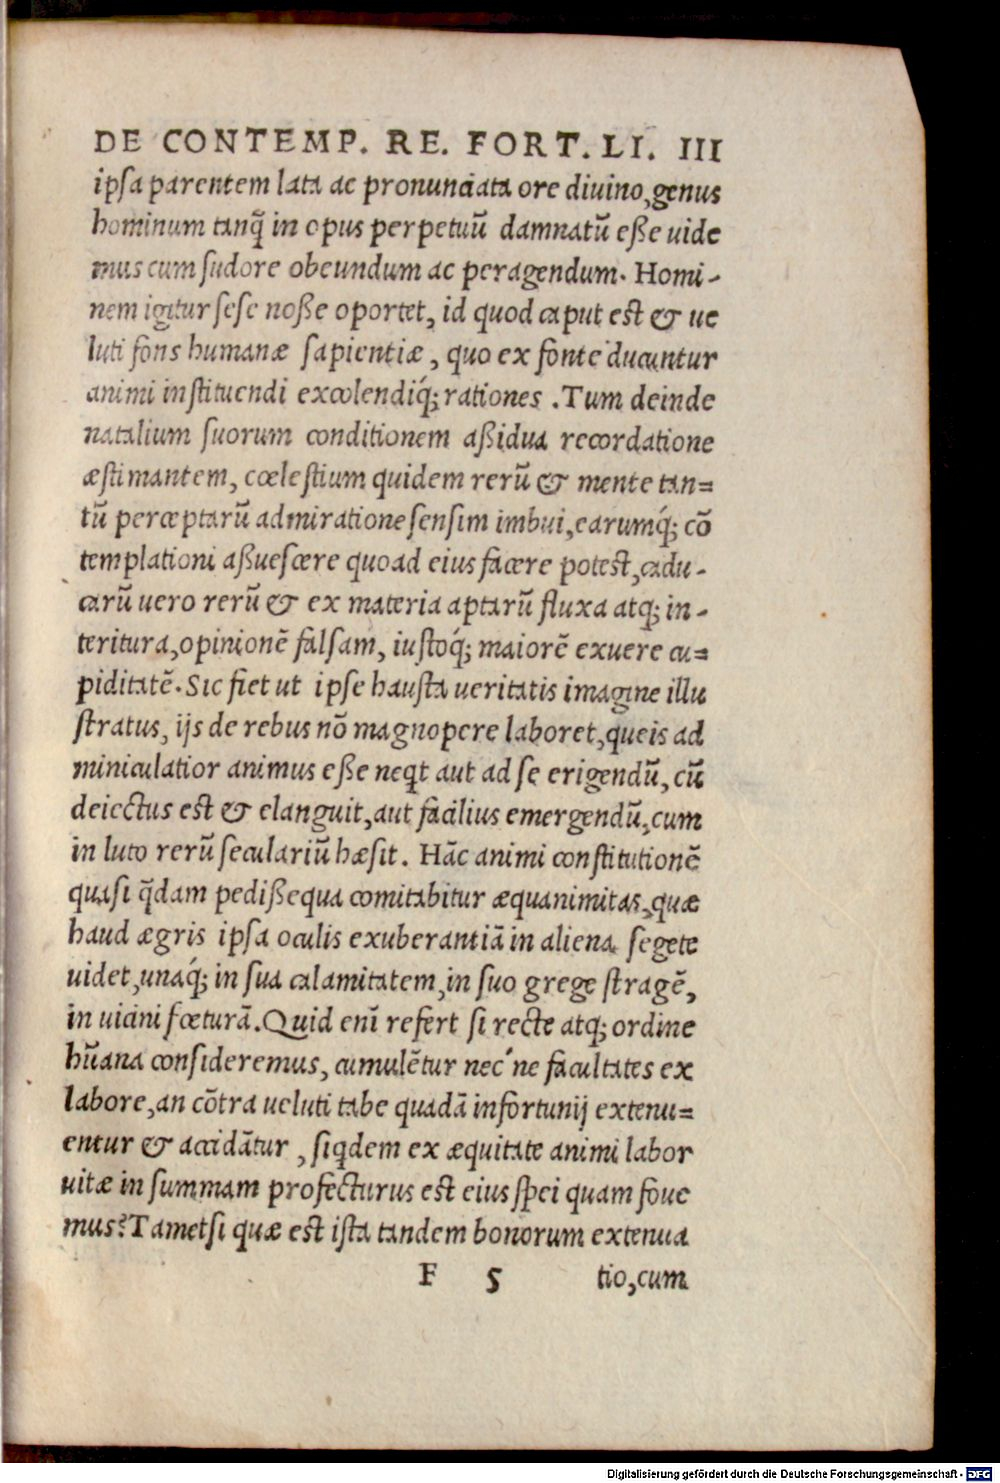 DE CONTEMP. RE. FORT. LI. III
ipsa parentem lata ac pronunciata ore diuino, genus
hominum tanq̃ in opus perpetuũ damnatũ eße uide
mus cum sudore obeundum ac peragendum. Homi-
nem igitur sese noße oportet, id quod caput est & ue
luti fons humanæ sapientiæ, quo ex fonte ducuntur
animi instituendi excolendiq́; rationes. Tum deinde
natalium suorum conditionem aßidua recordatione
æstimantem, cœlestium quidem rerũ & mente tan=
tũ perceptarũ admiratione sensim imbui, earumq́; cõ
templationi aßuescere quoad eius facere potest, cadu-
carũ uero rerũ & ex materia aptarũ fluxa atq; in-
teritura, opinionẽ falsam, iustoq́; maiorẽ exuere cu=
piditatẽ. Sic fiet ut ipse hausta ueritatis imagine illu
stratus, ijs de rebus nõ magnopere laboret, queis ad
miniculatior animus eße neqt aut ad se erigendũ, cũ
deiectus est & elanguit, aut facilius emergendũ, cum
in luto rerũ seculariũ hæsit. Hãc animi constitutionẽ
quasi q̃dam pedißequa comitabitur æquanimitas, quæ
haud ægris ipsa oculis exuberantiã in aliena segete
uidet, unaq́; in sua calamitatem, in suo grege stragẽ,
in uicini fœturã. Quid enĩ refert si recte atq; ordine
hũana consideremus, cumulẽtur nec'ne facultates ex
labore, an cõtra ueluti tabe quadã infortunij extenu=
entur & accidãtur, siqdem ex æquitate animi labor
uitæ in summam profecturus est eius spei quam foue
mus? Tametsi quæ est ista tandem bonorum extenua
F 5 tio, cum
Digitalisierung gefördert durch die Deutsche Forschungsgemeinschaft - DFG